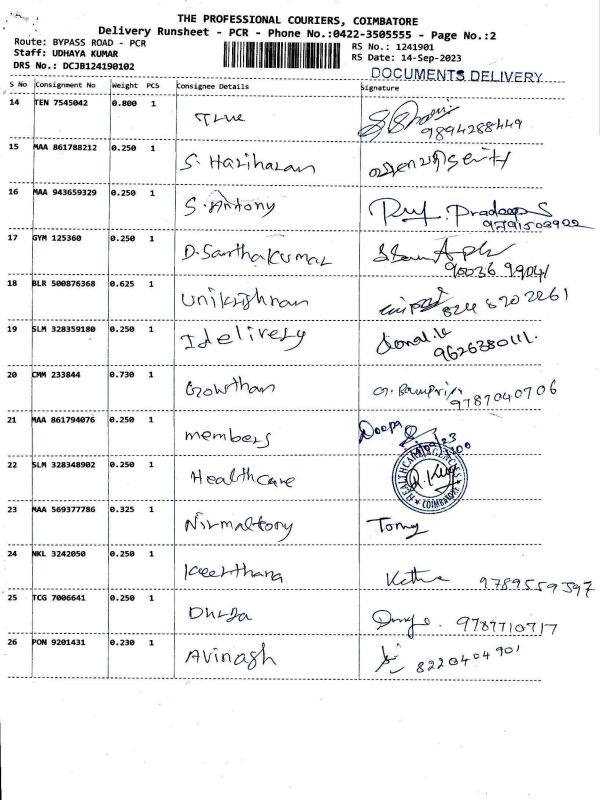 THE PROFESSIONAL COURIERS, COIMBATORE
Delivery Runsheet - PCR - Phone No.:0422-3505555 - Page No.:2
Route: BYPASS ROAD - PCR
Staff: UDHAYA KUMAR
DRS No.: DCJB124190102
RS No.: 1241901
RS Date: 14-Sep-2023
DOCUMENTS DELIVERY
S No Consignment No Weight PCS Consignee Details Signature
14 TEN 7545042 0.800 1 True
9894288449
15 MAA 861788212 0.250 1 S. Hariharan
16 MAA 943659329 0.250 1 S. Antony Pradeep S
9791503922
17 GYM 125360 0.250 1 D. Santhakumar
90036 99041
18 BLR 500876368 0.625 1 Unikrishnan
19 SLM 328359180 0.250 1 Idelivery
20 CMM 233844 0.730 1 Gowthan
9787040706
21 MAA 861794076 0.250 1 members Deepa
22 SLM 328348902 0.250 1 Healthcare HEALTHCARE COIMBATORE
23 MAA 569377786 0.325 1 Nirmaltony Tomy
24 NKL 3242050 0.250 1 Keerthana 9789559397
25 TCG 7006641 0.250 1 Dhurga 9787710717
26 PON 9201431 0.230 1 Avinash 8220404901